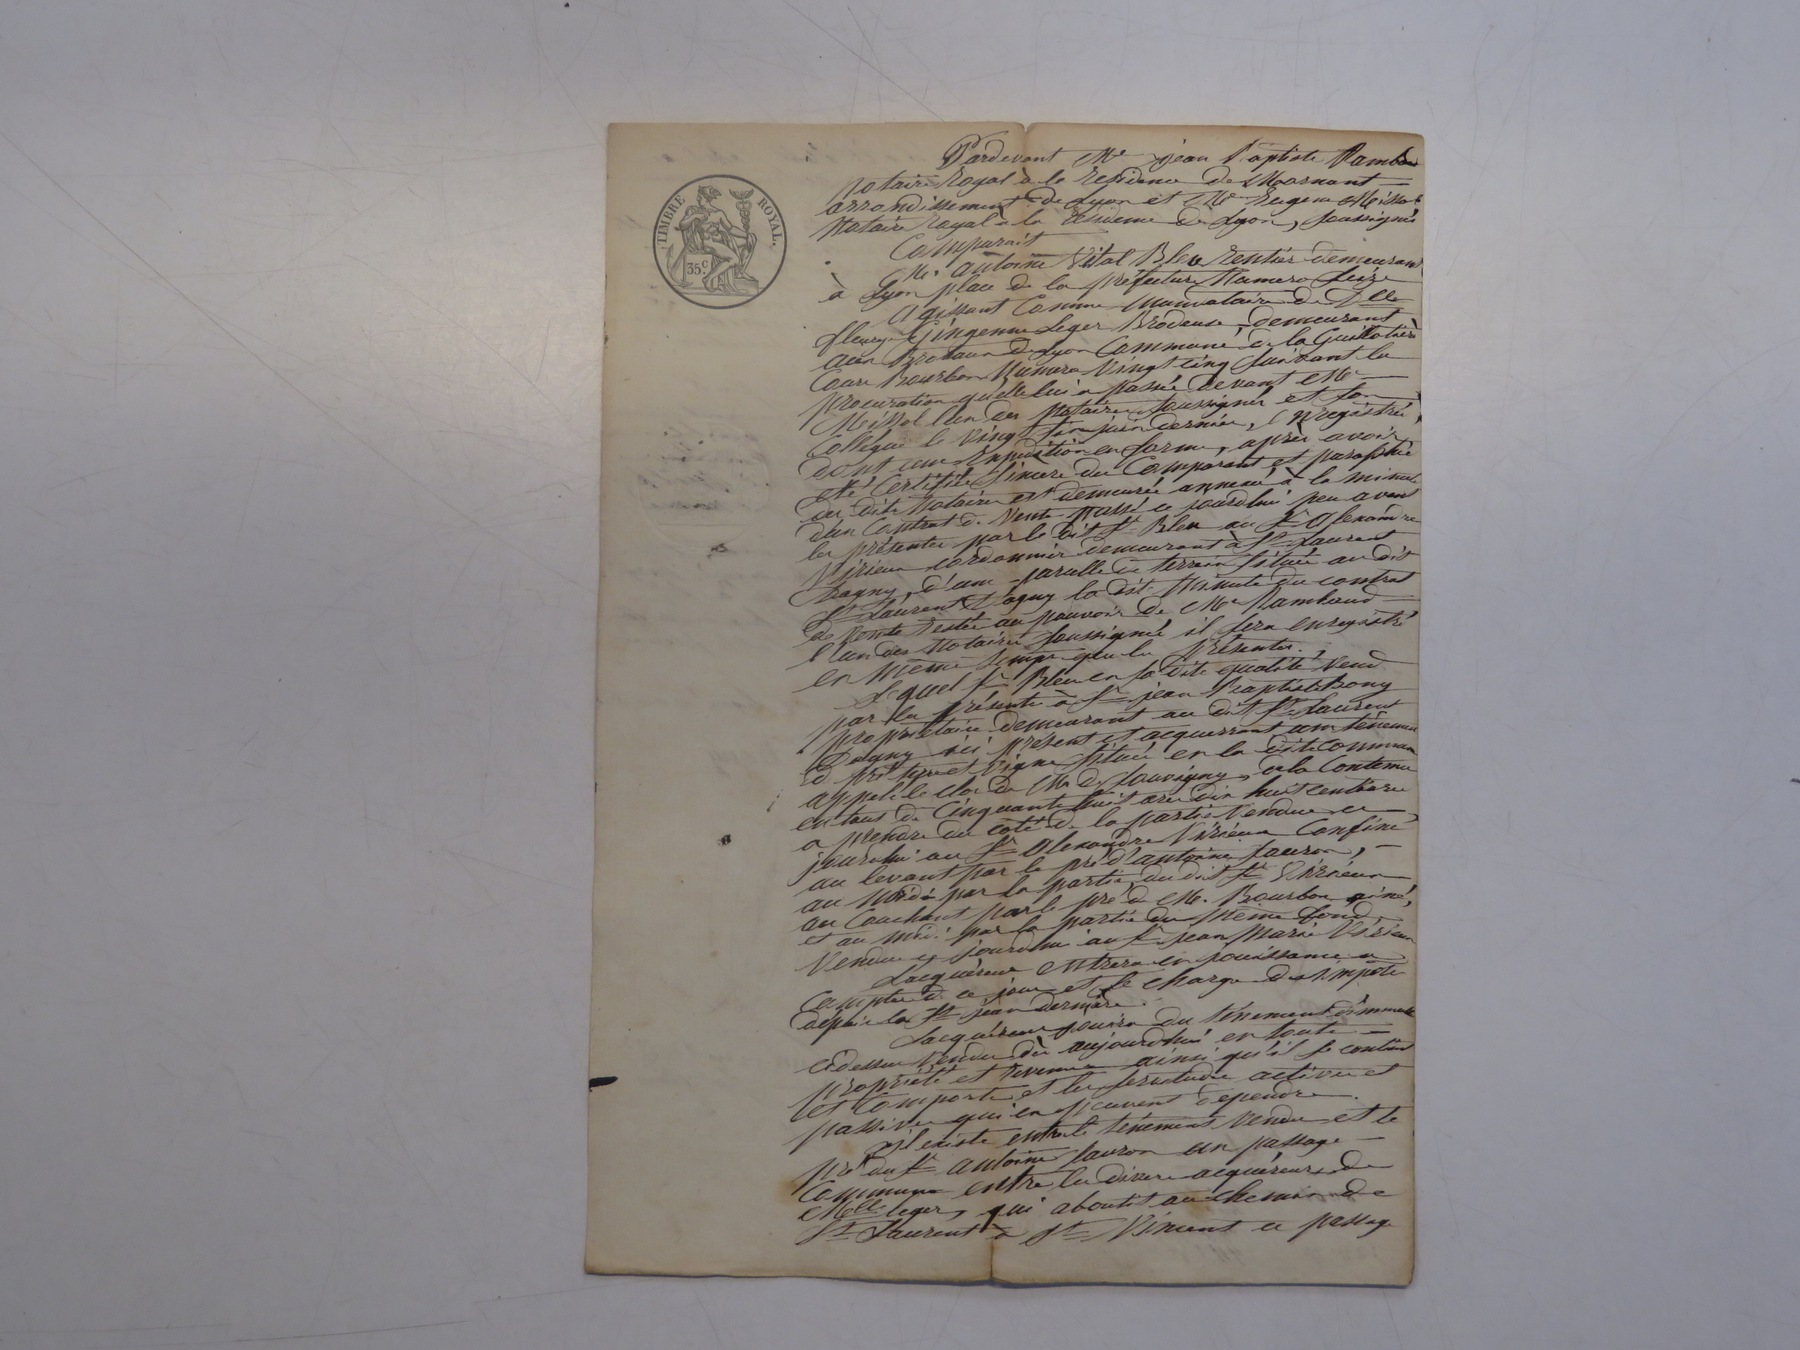 TIMBRE ROYAL.
35 c.
Pardevant Me jean Baptiste Rambaud
notaire Royal à la résidence de Mornant
arrondissement de Lyon et Me Eugene Missol
Notaire Royal à la résidence de Lyon, soussignés
Comparait
Mr. antoine Vital Bleu rentier demeurant
à Lyon place de la préfecture Numero seize
agissant Comme Mandataire de Dlle
fleurye leger Brodeuse, demeurant
aux Brotaux de Lyon Commune de la Guillotière
Cours Bourbon Numero Vingt cinq suivant la
procuration quelle lui a passée devant Me
Missol l'un des Notaires soussignés et son
Collègue le Vingt juin dernier, Enregistrée
dont une Expedition en forme, après avoir
été Certifiée sincère du Comparant et paraphée
des dits Notaires est demeurée annexée à la minute
d'un Contrat de Vente passé ce jourdhui peu avant
les présentes par le dit Sr Bleu au Sr Alexandre
Virieux cordonnier demeurant à St Laurent
Dagny, d'une parcelle de terrain située au dit
St Laurent Dagny la dite Minute du contrat
de Vente restée au pouvoir de Me Rambaud
l'un des Notaires soussignés il sera enregistré
en même temps que les présentes.
Lequel Sr Bleu en sa dite qualité Vend
par la présente à Sr jean Baptiste Bony
propriétaire demeurant au dit St Laurent
Dagny ici présent et acquerrant un tènement
de pré terre et Vigne situé en la dite commune
appelé le clos de Mr de Souvigny, de la Contenue
en tout de Cinquante huit ares dix huit centiares
a prendre du coté de la partie Vendue ce
jourdhui au Sr Alexandre Virieux Confiné
au levant par le pré d'antoine Jauron,
au Nord par la partie du dit Sr Virieux
au Couchant par le pré de Mr. Bourbon ainé,
et au midi par la partie du même fond
Vendue ce jourdhui au Sr jean Marie Virieux
Lacquéreur entrera en jouissance a
Compter de ce jour et se charge des impots
dépuis la St jean dernière.
Lacquéreur jouira du tènement d'immeuble
cidessus Vendu dès aujourdhui en toute
propriété et revenu ainsi qu'il se contient
et Comporte et les servitudes actives et
passives qui en peuvent dépendre.
il existe entre le tènement Vendu et le
pré du Sr antoine Jauron un passage
Commun entre les divers acquéreurs de
Melle leger, qui aboutit au chemin de
St Laurent à St Vincent ce passage